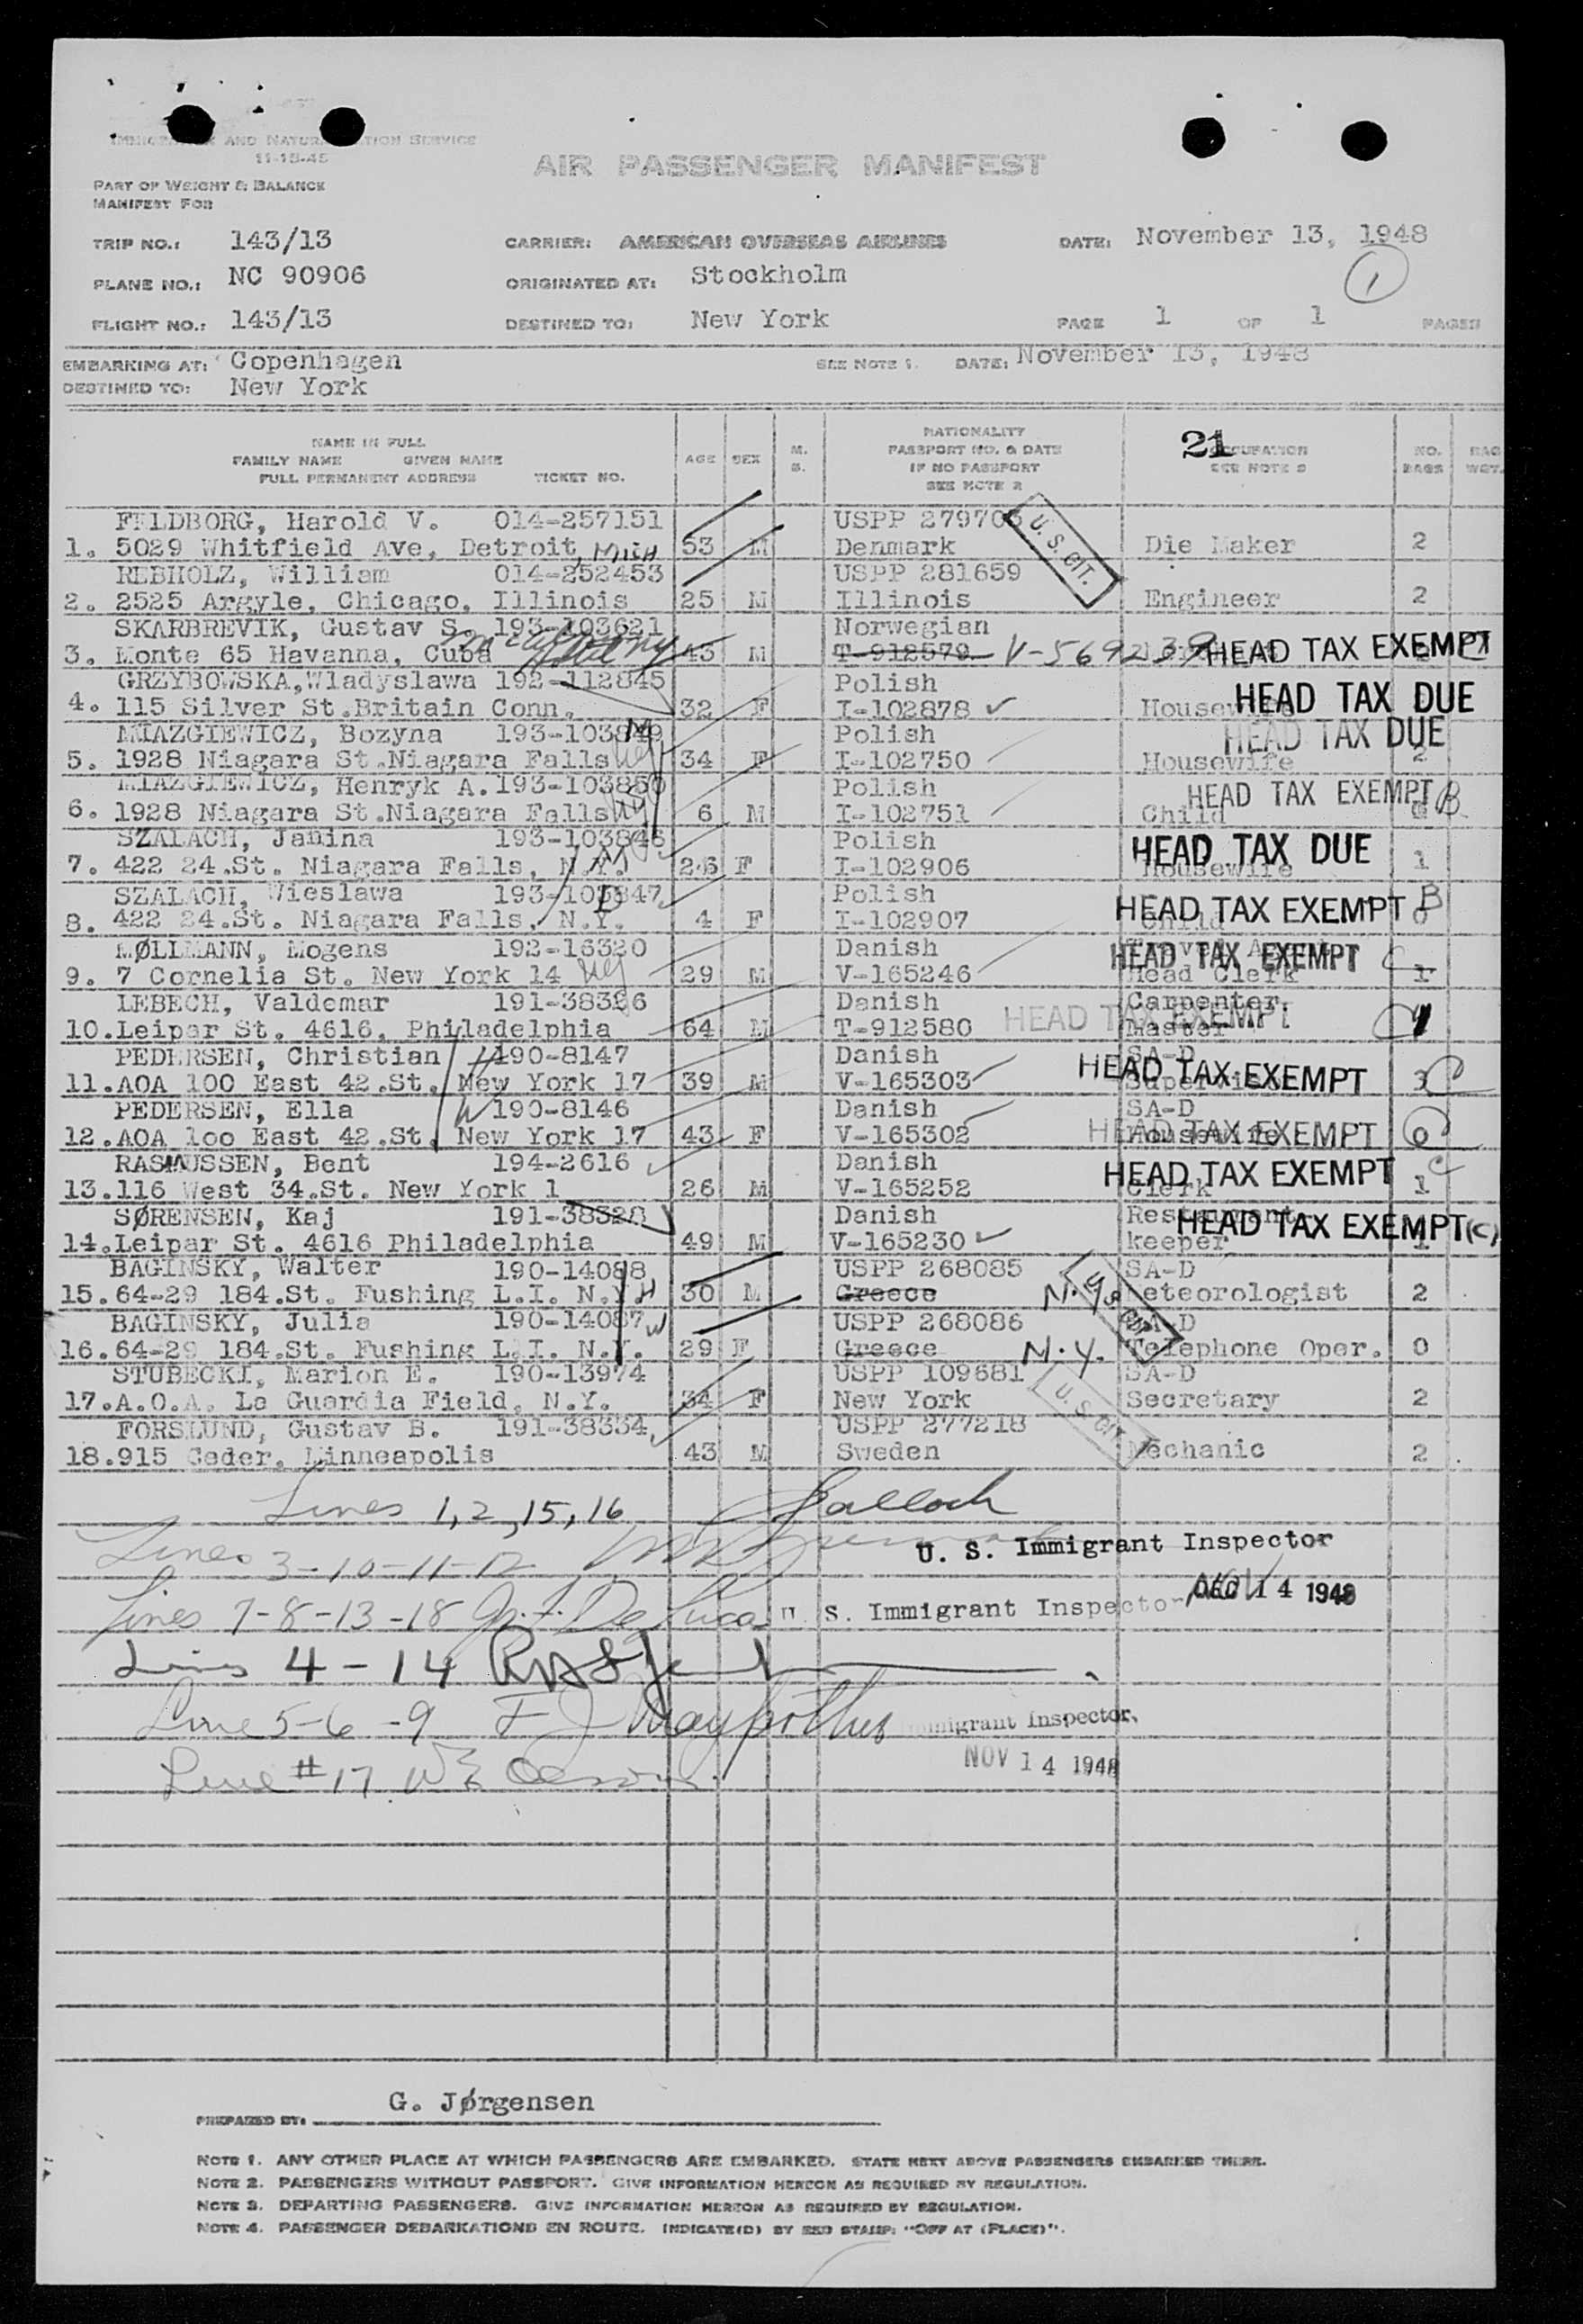 IMMIGRATION AND NATURALIZATION SERVICE
11-15-45
AIR PASSENGER MANIFEST
PART OF WEIGHT & BALANCE
MANIFEST FOR
TRIP NO.: 143/13 CARRIER: AMERICAN OVERSEAS AIRLINES DATE: November 13, 1948
1
PLANE NO.: NC 90906 ORIGINATED AT: Stockholm
FLIGHT NO.: 143/13 DESTINED TO: New York PAGE 1 OF 1 PAGES
EMBARKING AT: Copenhagen SEE NOTE 1. DATE: November 13, 1948
DESTINED TO: New York
NAME IN FULL
FAMILY NAME GIVEN NAME
FULL PERMANENT ADDRESS TICKET NO. AGE SEX M. S. NATIONALITY PASSPORT NO. & DATE IF NO PASSPORT SEE NOTE 2 21 OCCUPATION SEE NOTE 3 NO. BAGS BAG WGT.
FELDBORG, Harold V. 014-257151 USPP 279703 U. S. CIT.
1. 5029 Whitfield Ave, Detroit, MICH 53 M Denmark Die Maker 2
REBHOLZ, William 014-252453 USPP 281659
2. 2525 Argyle, Chicago, Illinois 25 M Illinois Engineer 2
SKARBREVIK, Gustav S. 193-103621 Norwegian
3. Monte 65 Havanna, Cuba 43 M T-912579 V-569239 HEAD TAX EXEMPT
GRZYBOWSKA, Wladyslawa 192-112845 Polish
4. 115 Silver St. Britain Conn. 32 F I-102878 Housewife HEAD TAX DUE
MIAZGIEWICZ, Bozyna 193-103849 Polish HEAD TAX DUE
5. 1928 Niagara St. Niagara Falls 34 F I-102750 Housewife 2
MIAZGIEWICZ, Henryk A. 193-103850 Polish HEAD TAX EXEMPT B
6. 1928 Niagara St. Niagara Falls 6 M I-102751 Child
SZALACH, Janina 193-103846 Polish HEAD TAX DUE
7. 422 24.St. Niagara Falls, N.Y. 26 F I-102906 Housewife 1
SZALACH, Wieslawa 193-103847 Polish HEAD TAX EXEMPT B
8. 422 24.St. Niagara Falls, N.Y. 4 F I-102907 Child 0
MØLLMANN, Mogens 192-16320 Danish HEAD TAX EXEMPT C
9. 7 Cornelia St. New York 14 29 M V-165246 Head Clerk 1
LEBECH, Valdemar 191-38326 Danish Carpenter
10. Leipar St. 4616, Philadelphia 64 M T-912580 HEAD TAX EXEMPT Master 1
PEDERSEN, Christian H 190-8147 Danish SA-D
11. AOA 100 East 42.St. New York 17 39 M V-165303 HEAD TAX EXEMPT 3 C
PEDERSEN, Ella W 190-8146 Danish SA-D
12. AOA 100 East 42.St. New York 17 43 F V-165302 HEAD TAX EXEMPT Housewife 0
RASMUSSEN, Bent 194-2616 Danish HEAD TAX EXEMPT C
13. 116 West 34.St. New York 1 26 M V-165252 Clerk 1
SØRENSEN, Kaj 191-38328 Danish Restaurant HEAD TAX EXEMPT (C)
14. Leipar St. 4616 Philadelphia 49 M V-165230 keeper 1
BAGINSKY, Walter 190-14088 USPP 268085 SA-D
15. 64-29 184.St. Fushing L.I. N.Y. H 30 M Greece N.Y. Meteorologist 2
BAGINSKY, Julia 190-14087 W USPP 268086 SA-D
16. 64-29 184.St. Fushing L.I. N.Y. 29 F Greece N.Y. Telephone Oper. 0
STUBECKI, Marion E. 190-13974 USPP 109681 SA-D
17. A.O.A. La Guardia Field, N.Y. 34 F New York U. S. CIT. Secretary 2
FORSLUND, Gustav B. 191-38334 USPP 277218
18. 915 Ceder, Minneapolis 43 M Sweden Mechanic 2
Lines 1, 2, 15, 16
Lines 3-10-11-12 U. S. Immigrant Inspector
Lines 7-8-13-18 De Luca U. S. Immigrant Inspector NOV 14 1948
Lines 4-14
Line 5-6-9 F J Immigrant Inspector.
NOV 14 1948
Line #17
G. Jørgensen
PREPARED BY:
NOTE 1. ANY OTHER PLACE AT WHICH PASSENGERS ARE EMBARKED. STATE NEXT ABOVE PASSENGERS EMBARKED THERE.
NOTE 2. PASSENGERS WITHOUT PASSPORT. GIVE INFORMATION HEREON AS REQUIRED BY REGULATION.
NOTE 3. DEPARTING PASSENGERS. GIVE INFORMATION HEREON AS REQUIRED BY REGULATION.
NOTE 4. PASSENGER DEBARKATIONS EN ROUTE. INDICATE(D) BY RED STAMP: "OFF AT (PLACE)".